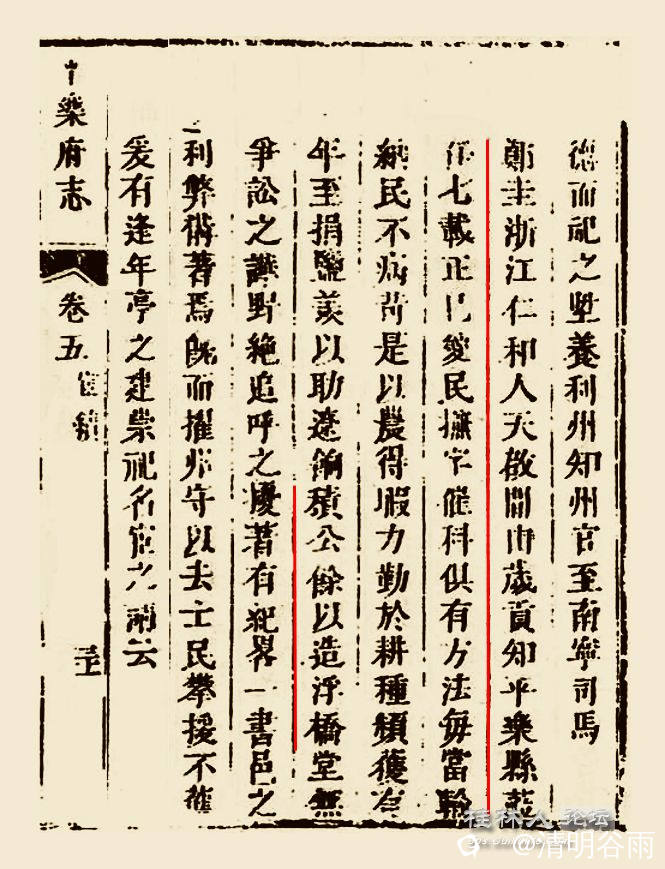 德而祀之陞養利州知州官至南寧司馬
鄭圭浙江仁和人天啟間由歲貢知平樂縣蒞
任七載正已愛民撫字催科俱有方法每當輸
納民不病苛是以農得暇力勤於耕種頻獲有
年至捐鹽羨以助遼餉積公餘以造浮橋堂無
爭訟之讙野絕追呼之擾著有紀畧一書邑之
利弊備著焉旣而擢州守以去士民攀援不獲
爰有逢年亭之建崇祀名宦之請云
樂府志
卷五
宦績
桂林人论坛
@清明谷雨